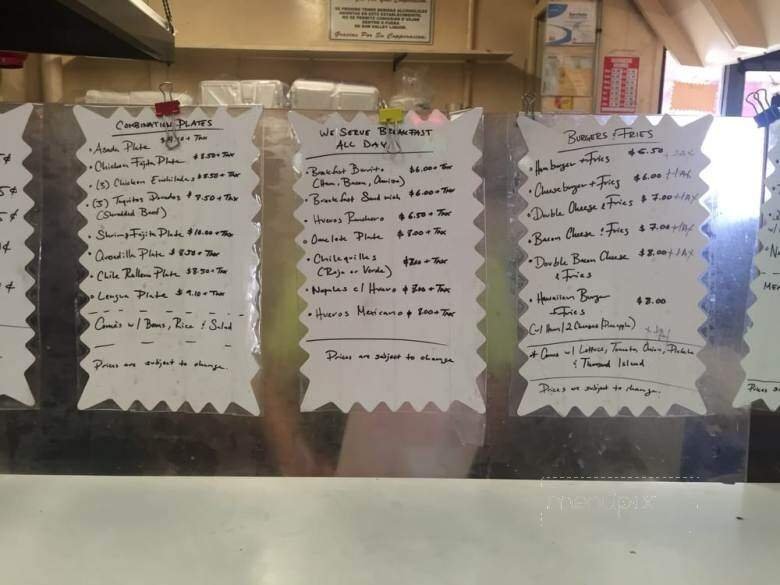 SE PROHIBE TENER BEBIDAS ALCOHOLICAS
ABIERTAS EN ESTE ESTABLECIMIENTO.
Gracias Por Su Cooperacion
COMBINATION PLATES
• Asada Plate + Tax
• Chicken Fajita Plate $8.50 + Tax
• (3) Chicken Enchiladas $8.50 + Tax
• (5) Taquitos Dorados $ 8.50 + Tax
(Shredded Beef)
• Shrimp Fajita Plate $10.00 + Tax
• Quesadilla Plate $ 8.50 + Tax
• Chile Relleno Plate $8.50 + Tax
• Lengua Plate $ 9.10 + Tax
Comes w/ Beans, Rice & Salad
Prices are subject to change.
WE SERVE BREAKFAST
ALL DAY
• Breakfast Burrito $6.00 + Tax
(Ham, Bacon, Chorizo)
• Breakfast Sandwich $6.00 + Tax
• Huevos Ranchero $ 6.50 + Tax
• Omelete Plate $ 8.00 + Tax
• Chilequilles $8.00 + Tax
(Rojo or Verde)
• Nopales c/ Huevo $ 8.00 + Tax
• Huevos Mexicano $ 8.00 + Tax
Prices are subject to change
BURGERS & FRIES
• Hamburger + Fries $6.50 + TAX
• Cheeseburger + Fries $6.00 + TAX
• Double Cheese & Fries $ 7.00 + TAX
• Bacon Cheese & Fries $ 7.00 + TAX
• Double Bacon Cheese $8.00 + TAX
& Fries
• Hawaiian Burger $ 8.00
& Fries
(w/ Ham/2 Cheeses/Pineapple)
* Comes w/ Lettuce, Tomato, Onion, Pickles
& Thousand Island
Prices are subject to change.
menupix